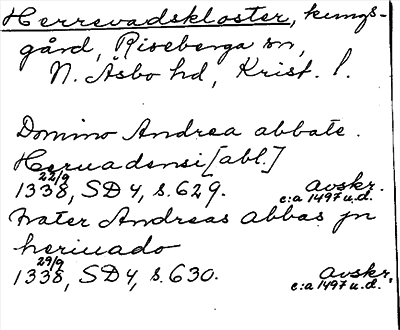 Herrevadskloster, kungs-
gård, Riseberga sn,
N. Åsbo hd, Krist. l.
Domino Andrea abbate.
Heruadensi [abl.]
22/9
1338, SD 4, s. 629. Avskr.
c:a 1497 u.d.
Frater Andreas abbas jn
heriuado
29/9
1338, SD 4, s. 630. Avskr.
c:a 1497 u.d.